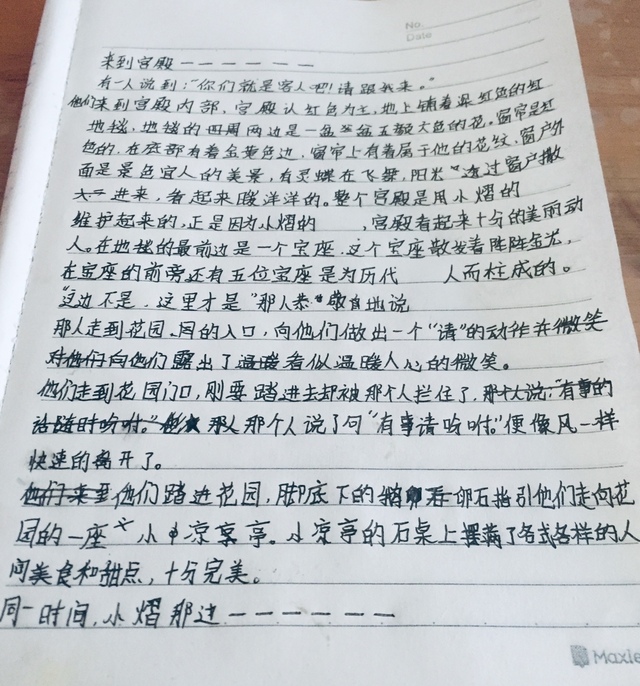 No.
Date
来到宫殿——————
有一人说到:“你们就是客人吧!请跟我来。”
他们来到宫殿内部,宫殿认红色为主,地上铺着深红色的红
地毯,地毯的四周两边是一盆盆五颜六色的花。窗帘是红
色的,在底部有着金黄色边,窗帘上有着属于他的花纹,窗户外
面是景色宜人的美景,有灵蝶在飞舞,阳光透过窗户撒
进来,看起来暖洋洋的。整个宫殿是用小熠的
维护起来的,正是因为小熠的 ,宫殿看起来十分的美丽动
人。在地毯的最前边是一个宝座,这个宝座散发着阵阵金光,
在宝座的前旁还有五位宝座是为历代 人而柱成的。
“这边不是,这里才是”那人恭敬自地说
那人走到花园的入口,向他们做出一个“请”的动作并微笑
对他们向他们露出了温暖看似温暖人心的微笑。
他们走到花园门口,刚要踏进去却被那个人拦住了,那个人说:“有事的
话随时吩咐。”那人那个人说了句“有事请吩咐。”便像风一样
快速的离开了。
他们来至他们踏进花园,脚底下的卵石指引他们走向花
园的一座小凉亭。小凉亭的石桌上摆满了各式各样的人
间美食和甜点,十分完美。
同一时间,小熠那边——————
Maxle